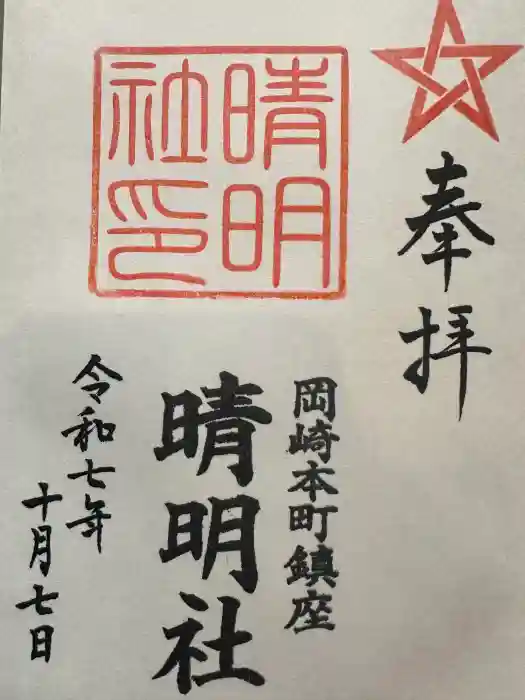 奉拝
岡崎本町鎮座
晴明社
令和七年
十月七日
晴明
社印